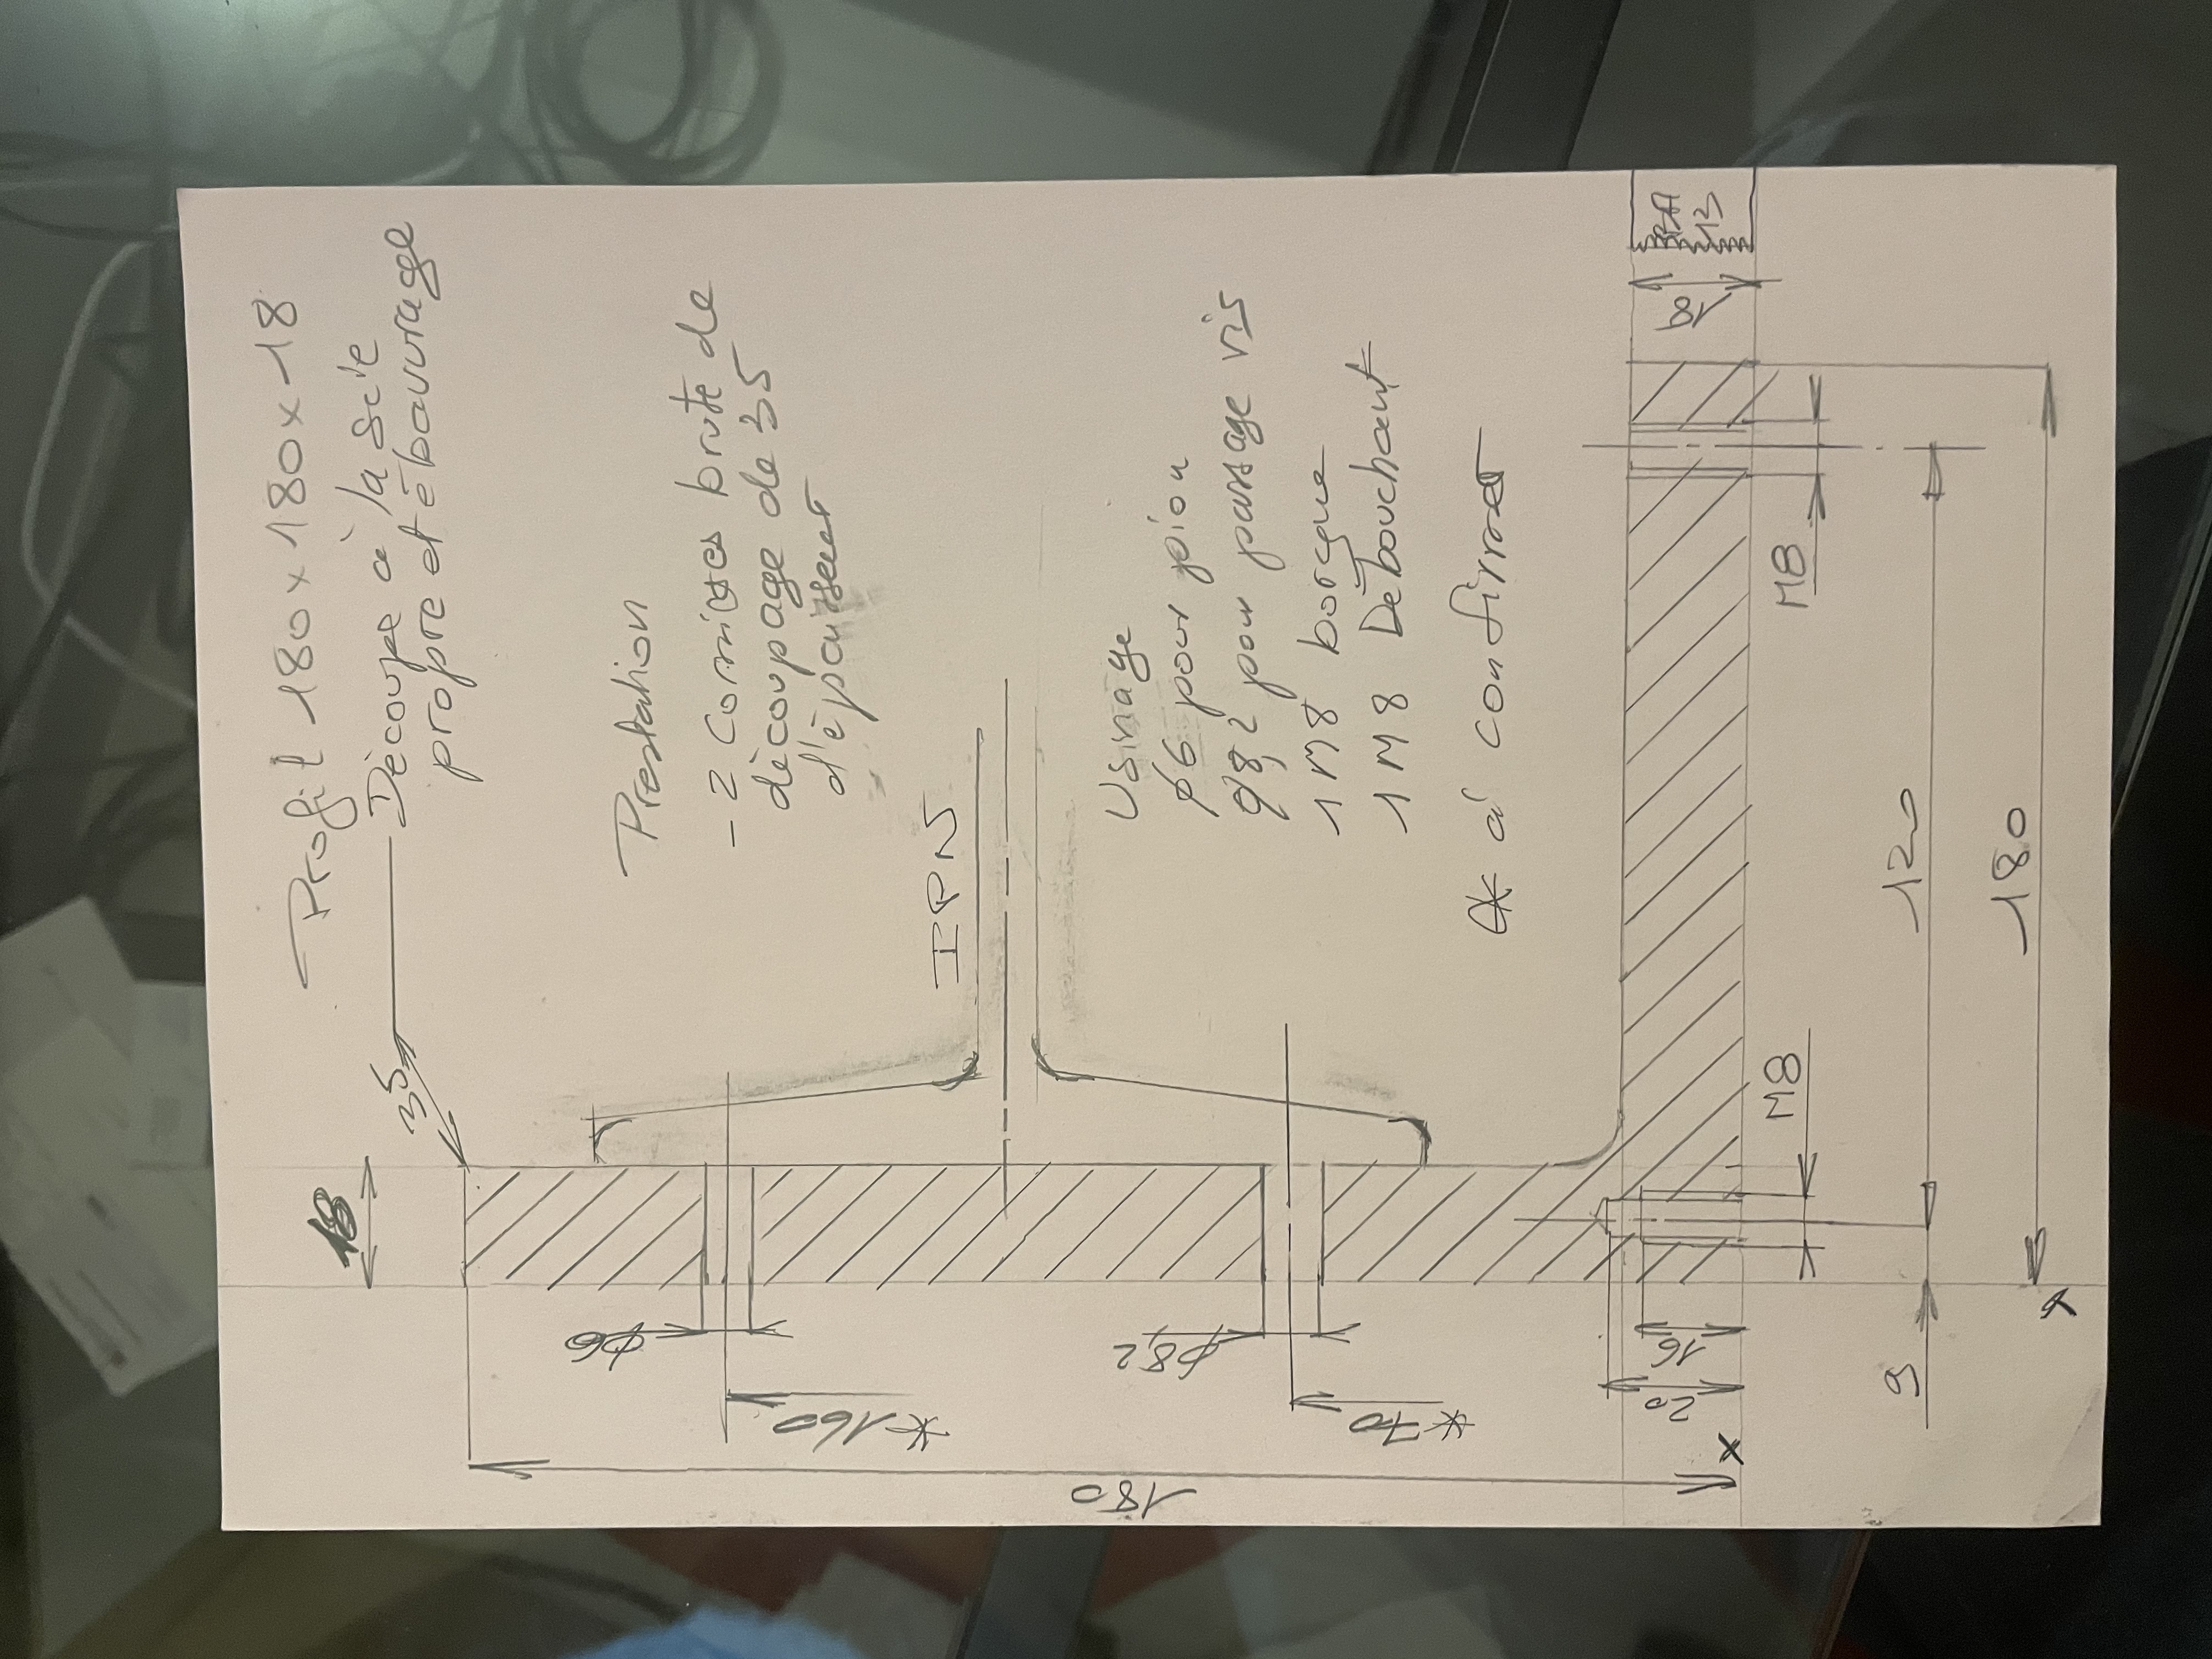 Profil 180 x 180 x 18
Découpe à la scie
propre et ébavurage
35
18
Prestation
- 2 Cornières brute de
découpage de 35
d'épaisseur
IPN
Usinage
φ6 pour pion
φ8,2 pour passage vis
1 M8 borgne
1 M8 Débouchant
* à confirmer
φ6
* 160
φ8,2
* 70
180
16
20
x
M8
M8
18
BA
13
120
9
180
x